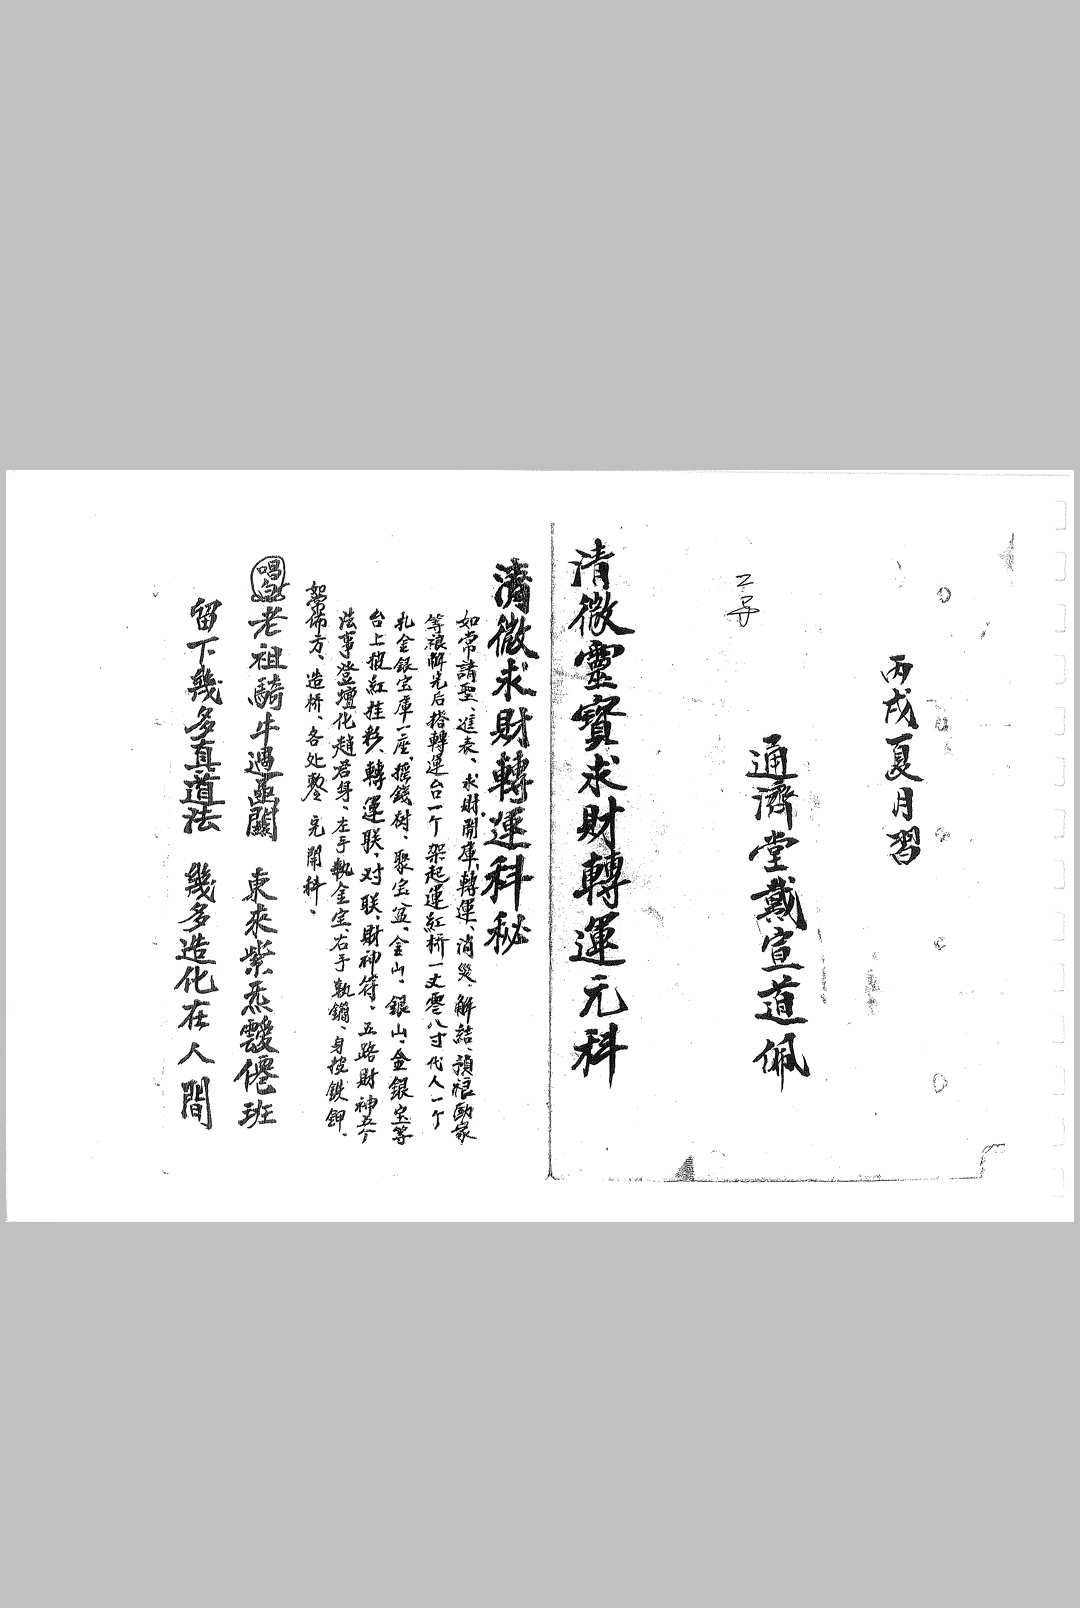 丙戌夏月習
通濟堂戴宣道佩
清微靈寳求財轉運元科
清微求財轉運科秘
如常請聖、進表、求財開庫、轉運、消災、解結、
等 解先后搭轉運台一个架起運紅桥一丈零八寸代人一个
扎金銀宝庫一座、摇錢树、聚宝盆、金山、銀山、金銀宝等
台上披紅挂彩、轉運联、对联、財神符、五路財神五个
法事登壇化趙君身、左手執金宝、右手執鐧、身按鉄鉀、
佈方、造桥、各处 完開科、
唱白 老祖騎牛過 關 東來紫炁靉僊班
留下幾多真道法 幾多造化在人間